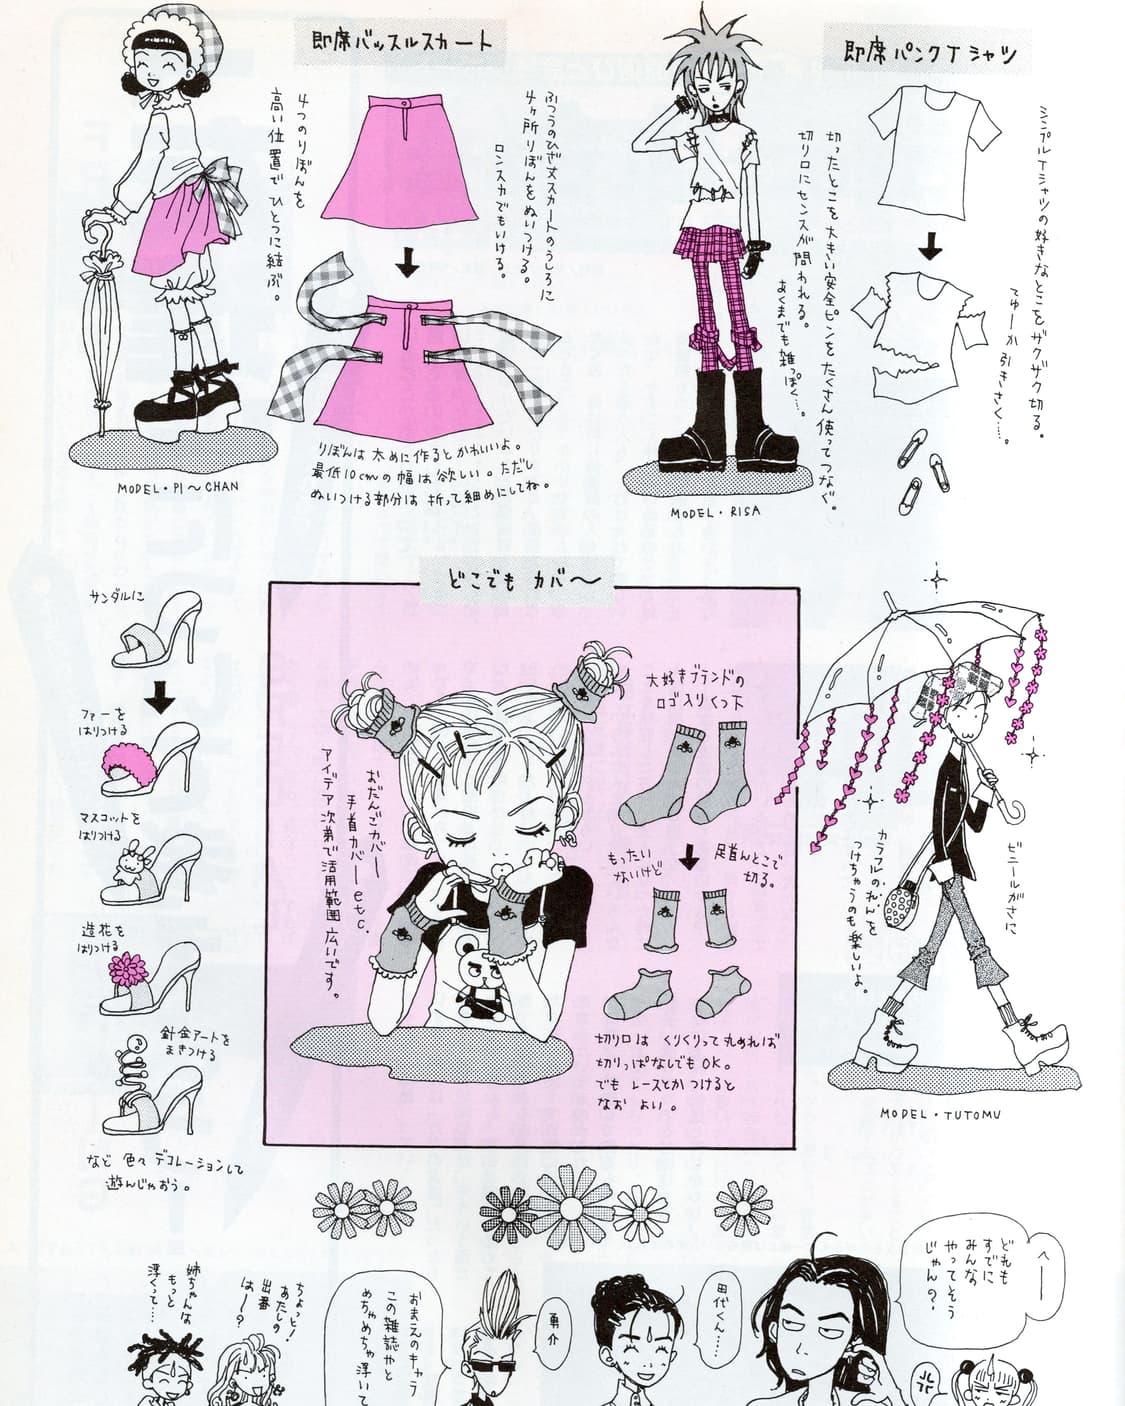 即席バッスルスカート
ふつうのひざ丈スカートのうしろに
4ヶ所りぼんをぬいつける。
ロンスカでもいける。
4つのりぼんを
高い位置でひとつに結ぶ。
りぼんは太めに作るとかわいいよ。
最低10cmの幅は欲しい。ただし
ぬいつける部分は折って細めにしてね。
MODEL・PI〜CHAN
即席パンクTシャツ
シンプルTシャツの好きなとこをザクザク切る。
てゆーか引きさく…。
切ったとこを大きい安全ピンをたくさん使ってつなぐ。
切り口にセンスが問われる。
あくまでも雑っぽく…。
MODEL・RISA
サンダルに
ファーを
はりつける
マスコットを
はりつける
造花を
はりつける
針金アートを
まきつける
など色々デコレーションして
遊んじゃおう。
どこでもカバ〜
大好きブランドの
ロゴ入りくつ下
おだんごカバー
手首カバーetc.
アイデア次第で活用範囲広いです。
足首んとこで
切る。
もったい
ないけど
切り口はくりくりって丸めれば
切りっぱなしでもOK。
でもレースとかつけると
なおよい。
ビニールがさに
カラフルのれんを
つけちゃうのも楽しいよ。
MODEL・TUTOMU
へ——
どれも
すでに
みんな
やってそう
じゃん?
田代くん……
勇介
おまえのキャラ
この雑誌やと
めちゃめちゃ浮いて
ちょっと!
あたしの
出番
は〜?
姉ちゃんは
もっと
浮くって…